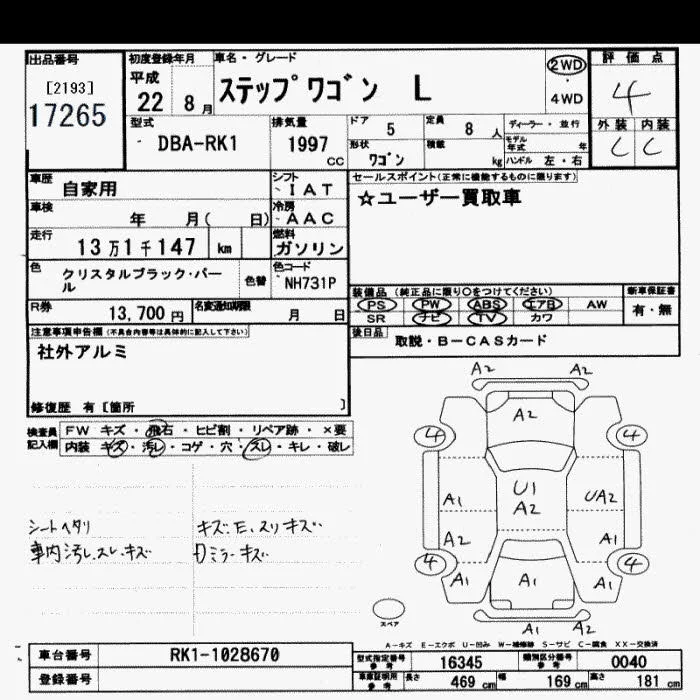 出品番号 初度登録年月 車名・グレード 評価点
[2193] 平成 ステップワゴン L 2WD ・ 4WD 4
17265 22 8月
型式 排気量 ドア 5 定員 8人 ディーラー・並行 外装 内装
DBA-RK1 1997cc 形状 ワゴン 積載 kg モデル年式 年 ハンドル 左・右 C C
車歴 自家用 シフト IAT セールスポイント(正常に機能するものに限ります)
車検 年 月( 日) 冷房 AAC ☆ユーザー買取車
走行 13万1千147 km 燃料 ガソリン
色 クリスタルブラック・パール 色替 色コード NH731P
装備品 (純正品に限り○をつけてください) 新車保証書
PS PW ABS エアB AW 有・無
SR ナビ TV カワ
R券 13,700円 名変通知期限 月 日
後日品 取説・B-CASカード
注意事項申告欄(不具合内容等は具体的に記入して下さい)
社外アルミ
修復歴 有 [箇所 ]
検査員記入欄 FW キズ・飛石・ヒビ割・リペア跡・×要
内装 キズ・汚レ・コゲ・穴・スレ・キレ・破レ
シートヘタリ キズ.E.スリキズ
車内汚レ.スレ.キズ Dミラーキズ
A2 A2
A2
4 4
A1 U1 A2 UA2
A2 A1
4 4
A1 A1 A1
A1 A2
スペア
A-キズ E-エクボ U-凹み W-補修跡 S-サビ C-腐食 XX-交換済
車台番号 RK1-1028670
登録番号
型式指定番号参考 16345 類別区分番号参考 0040
車庫証明用参考 長さ 469cm 幅 169cm 高さ 181cm